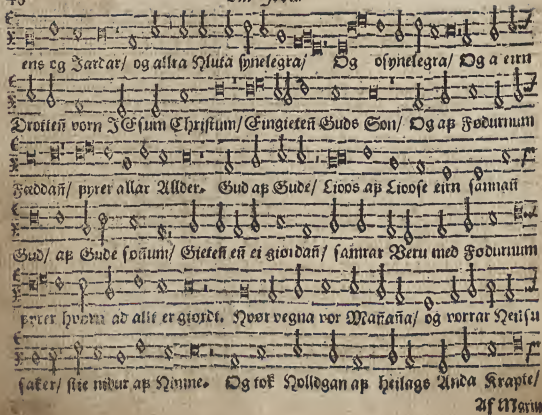 ens og Jardar/ og allra Hluta synelegra/ Og osynelegra/ Og a eirn
Drotteñ vorn JEsum Christum/ Eingieteñ Guds Son/ Og ap Fødurnum
Fæddañ/ pyrer allar Allder. Gud ap Gude/ Lioos ap Lioose eirn sannañ
Gud/ ap Gude soñum/ Gieteñ eñ ei giordañ/ samrar Veru med Fodurnum
pyrer hvorn ad allt er giordt. Hvør vegna vor Mañaña/ og vorrar Heilsu
saker/ stie nidur ap Himne. Og tok Holldgan ap heilags Anda Krapte/
Af Mariu